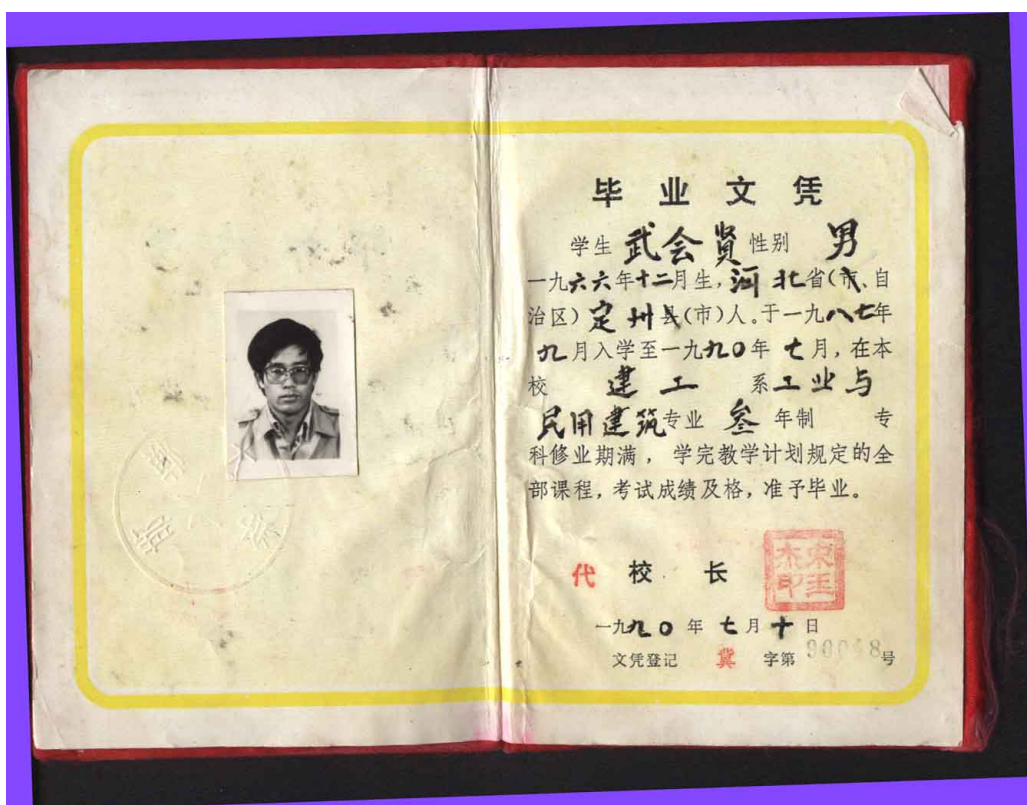 毕业文凭
学生 武会贤 性别 男
一九六六年十二月生,河北省(市、自
治区)定州县(市)人。于一九八七年
九月入学至一九九〇年七月,在本
校 建工 系工业与
民用建筑专业 叁 年制 专
科修业期满,学完教学计划规定的全
部课程,考试成绩及格,准予毕业。
代 校 长
一九九〇年七月十日
文凭登记 冀 字第 号